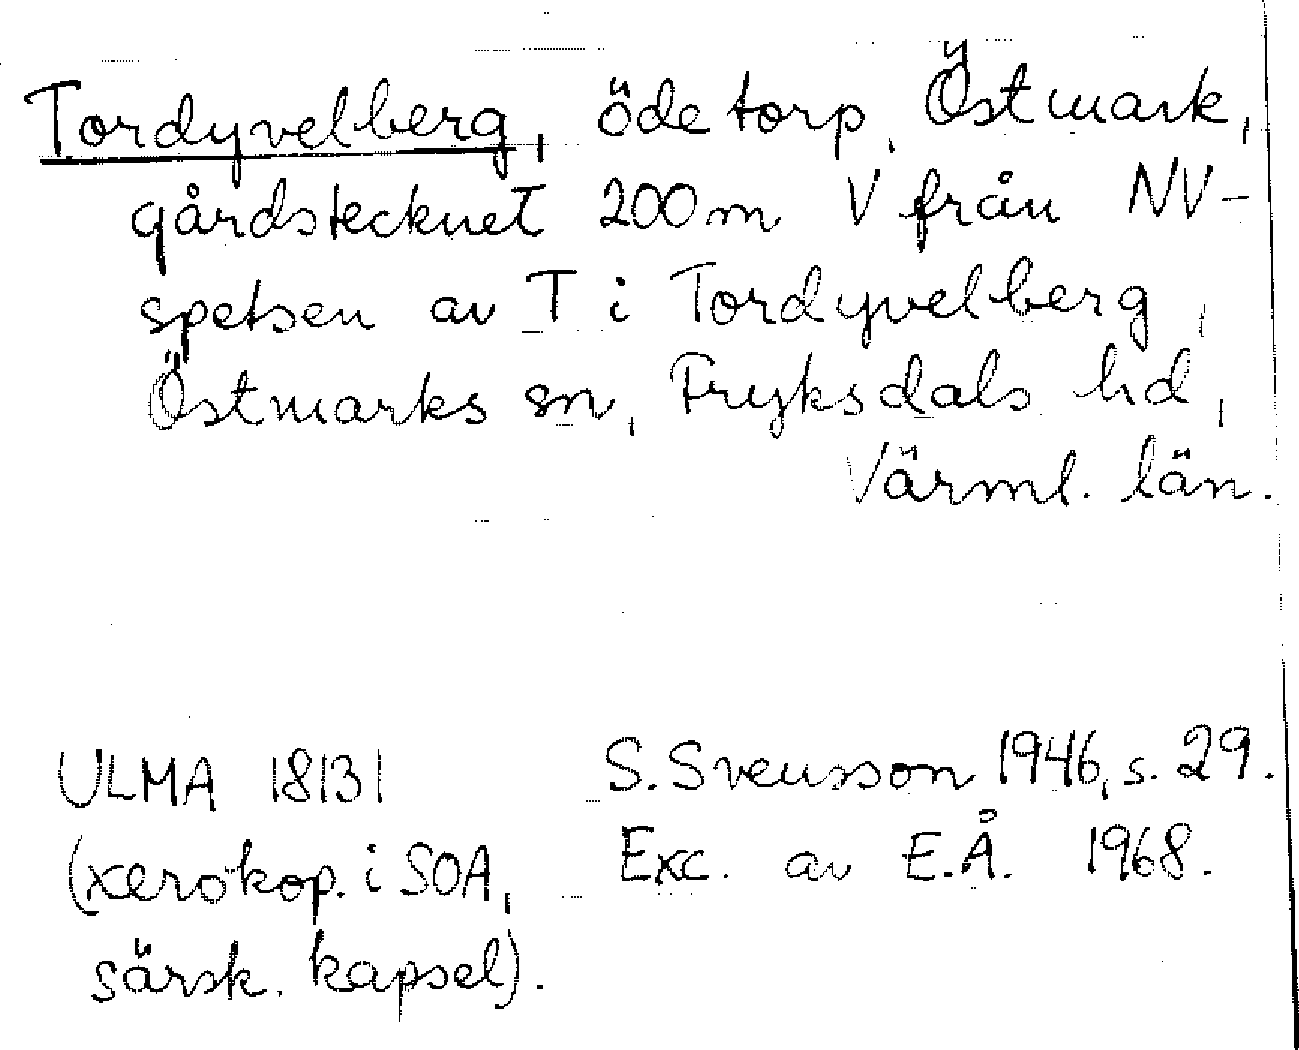 Tordyvelberg, öde torp, Östmark,
gårdstecknet 200 m V från NV-
spetsen av T i Tordyvelberg,
Östmarks sn, Fryksdals hd,
Värml. län.
ULMA 18131
(xerokop. i SOA,
särsk. kapsel).
S. Svensson 1946, s. 29.
Exc. av E.Å. 1968.